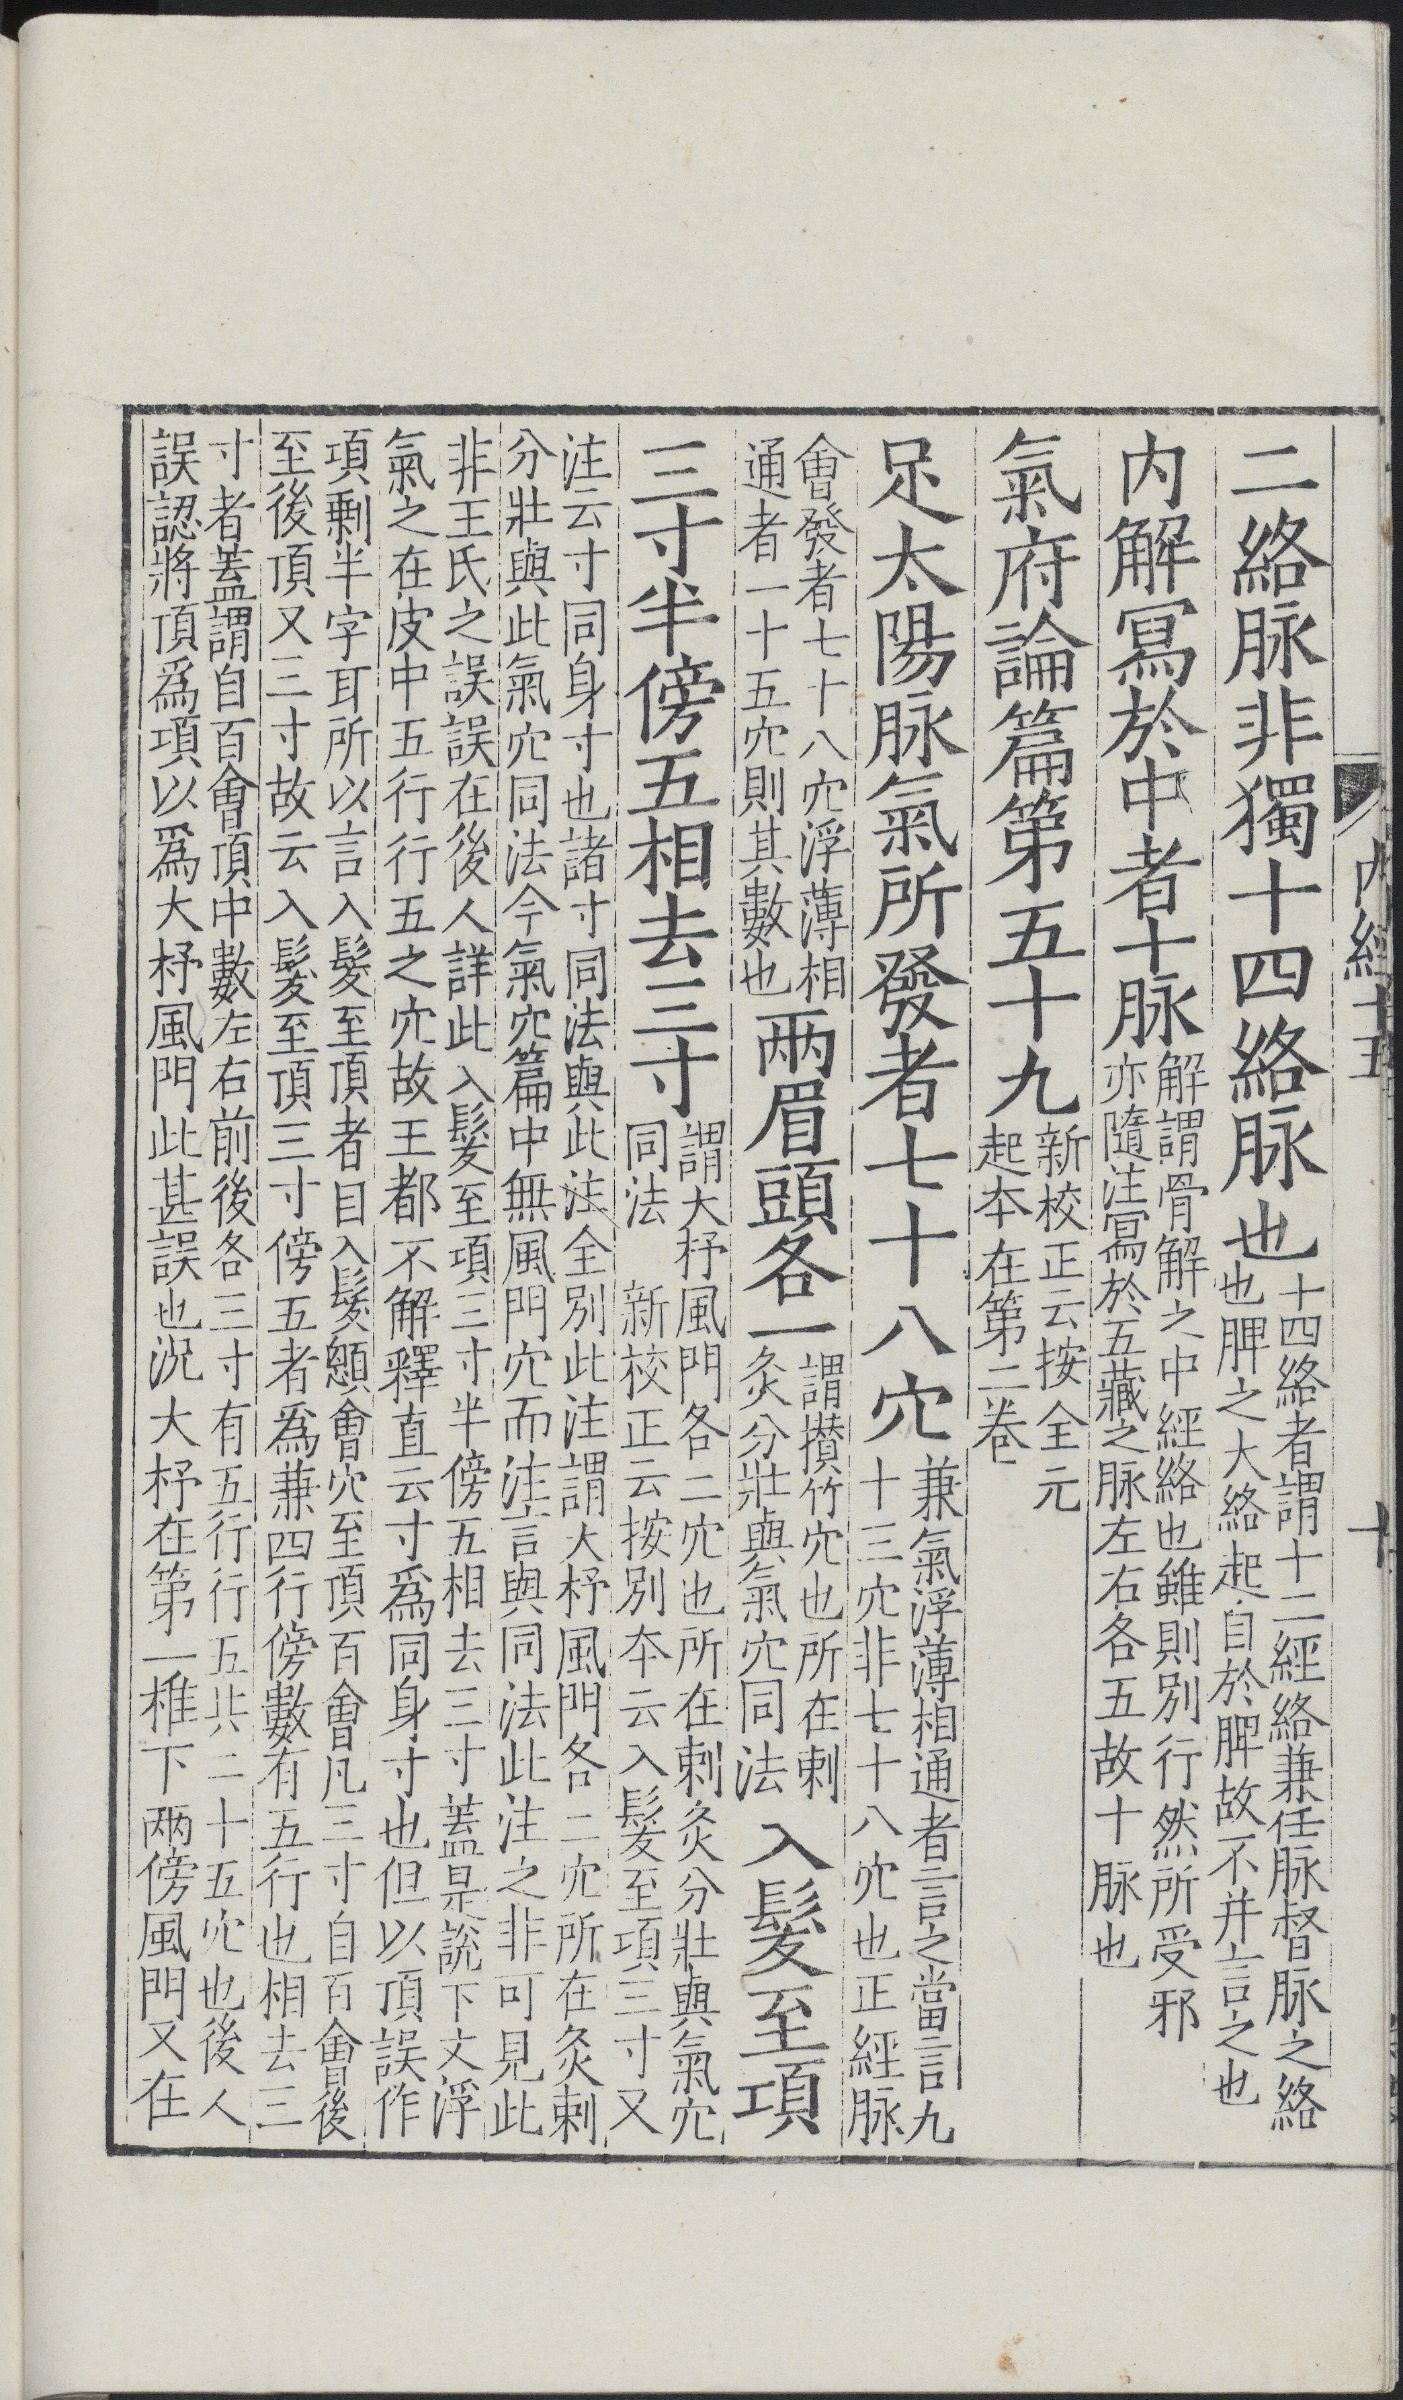 內經十五
十
二絡脉非獨十四絡脉也十四絡者謂十二經絡兼任脉督脉之絡
也脾之大絡起自於脾故不并言之也
內解寫於中者十脉解謂骨解之中經絡也雖則別行然所受邪
亦隨注寫於五藏之脉左右各五故十脉也
氣府論篇第五十九新校正云按全元
起本在第二卷
足太陽脉氣所發者七十八穴兼氣浮薄相通者言之當言九
十三穴非七十八穴也正經脉
會發者七十八穴浮薄相
通者一十五穴則其數也兩眉頭各一謂攅竹穴也所在刺
灸分壯與氣穴同法入髮至項
三寸半傍五相去三寸謂大杼風門各二穴也所在刺灸分壯與氣穴
同法 新校正云按別本云入髮至項三寸又
注云寸同身寸也諸寸同法與此注全別此注謂大杼風門各二穴所在灸刺
分壯與此氣穴同法今氣穴篇中無風門穴而注言與同法此注之非可見此
非王氏之誤誤在後人詳此入髮至項三寸半傍五相去三寸蓋是說下文浮
氣之在皮中五行行五之穴故王都不解釋直云寸爲同身寸也但以頂誤作
項剩半字耳所以言入髮至頂者自入髮顖會穴至頂百會凡三寸自百會後
至後頂又三寸故云入髮至頂三寸傍五者爲兼四行傍數有五行也相去三
寸者蓋謂自百會頂中數左右前後各三寸有五行行五共二十五穴也後人
誤認將頂爲項以爲大杼風門此甚誤也況大杼在第一椎下兩傍風門又在